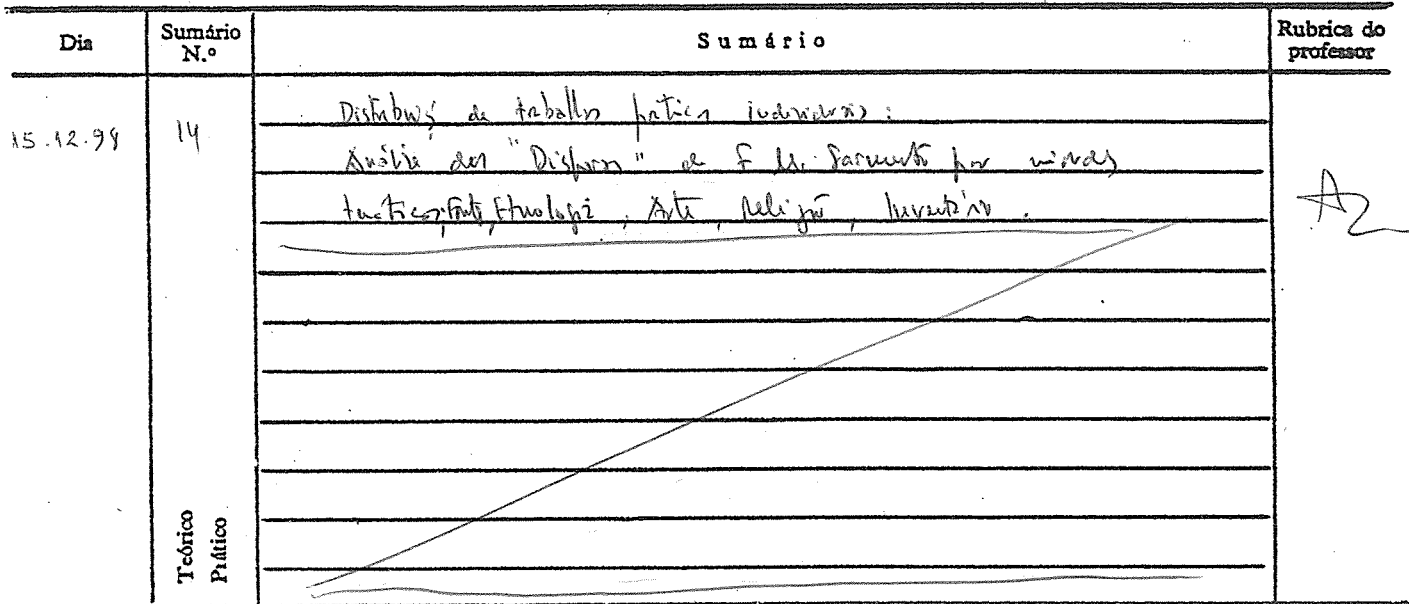 Dia
Sumário N.º
Sumário
Rubrica do professor
15.12.98
14
de trabalhos práticos individuais:
Análise dos "Dispersos" de F. M. Sarmento por
Etnologia, Arte, Religião, Inventário.
Teórico
Prático